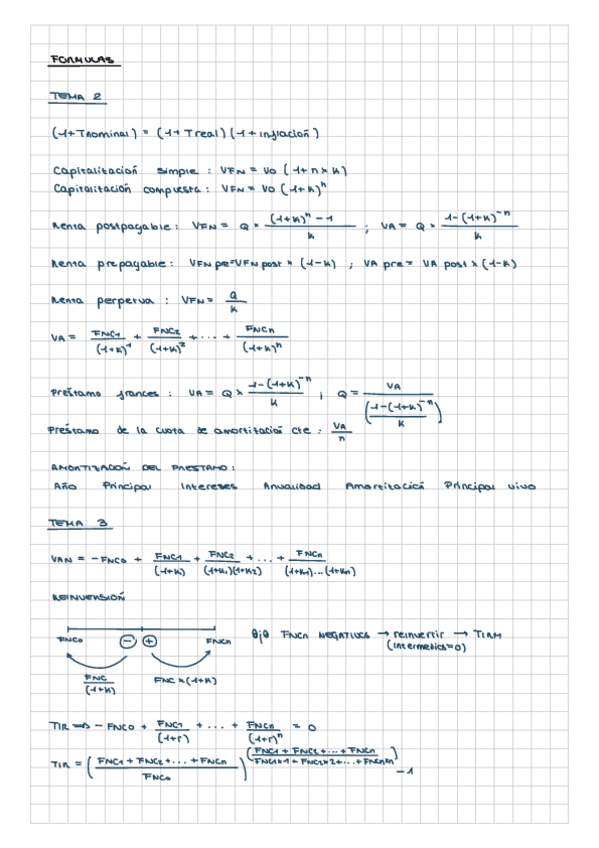 FORMULAS
TEMA 2
(1+Tnominal) = (1+Treal)(1+inflación)
Capitalitación simple : VFN = Vo (1+n×k)
Capitalitación compuesta : VFN = Vo (1+k)^n
Renta postpagable : VFN = Q × ((1+k)^n − 1)/k ; VA = Q × (1−(1+k)^−n)/k
Renta prepagable : VFN pre=VFN post × (1−k) ; VA pre = VA post × (1−k)
Renta perpetua : VFN = Q/k
VA = FNC1/(1+k)^1 + FNC2/(1+k)^2 + ... + FNCn/(1+k)^n
Préstamo frances : VA = Q × (1−(1+k)^−n)/k ; Q = VA/((1−(1+k)^−n)/k)
Préstamo de la cuota de amortitación cte : VA/n
AMORTIZACIÓN DEL PRESTAMO :
Año Principal Intereses Anualidad Amortitación Principal vivo
TEMA 3
VAN = −FNC0 + FNC1/(1+k1) + FNC2/(1+k1)(1+k2) + ... + FNCn/(1+k1)...(1+kn)
REINVERSIÓN
FNC0 − + FNCn
FNC/(1+k) FNC×(1+k)
Ojo FNCn NEGATIVOS → reinvertir → TIRM
(intermedios=0)
TIR => − FNC0 + FNC1/(1+r) + ... + FNCn/(1+r)^n = 0
TIR = ((FNC1 + FNC2 + ... + FNCn)/FNC0)^((FNC1 + FNC2 + ... + FNCn)/(FNC1×1 + FNC2×2 + ... + FNCn×n)) − 1